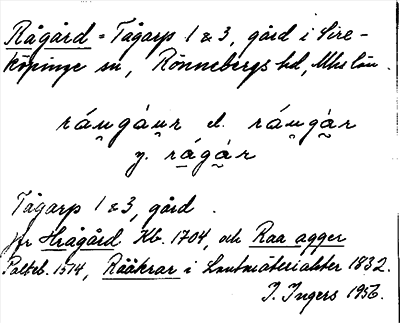 Rågård = Tågarp 1 & 3, gård i Sire-
köpinge sn, Rönnebergs hd, Mhs län.
ráu̯gáu̯r el. ráu̯gár
y. rágár
Tågarp 1 & 3, gård.
jfr Hrågård Kb. 1704, och Raa agger
Palteb. 1514, Rååkrar i Lantmäteriakter 1832.
I. Ingers 1956.